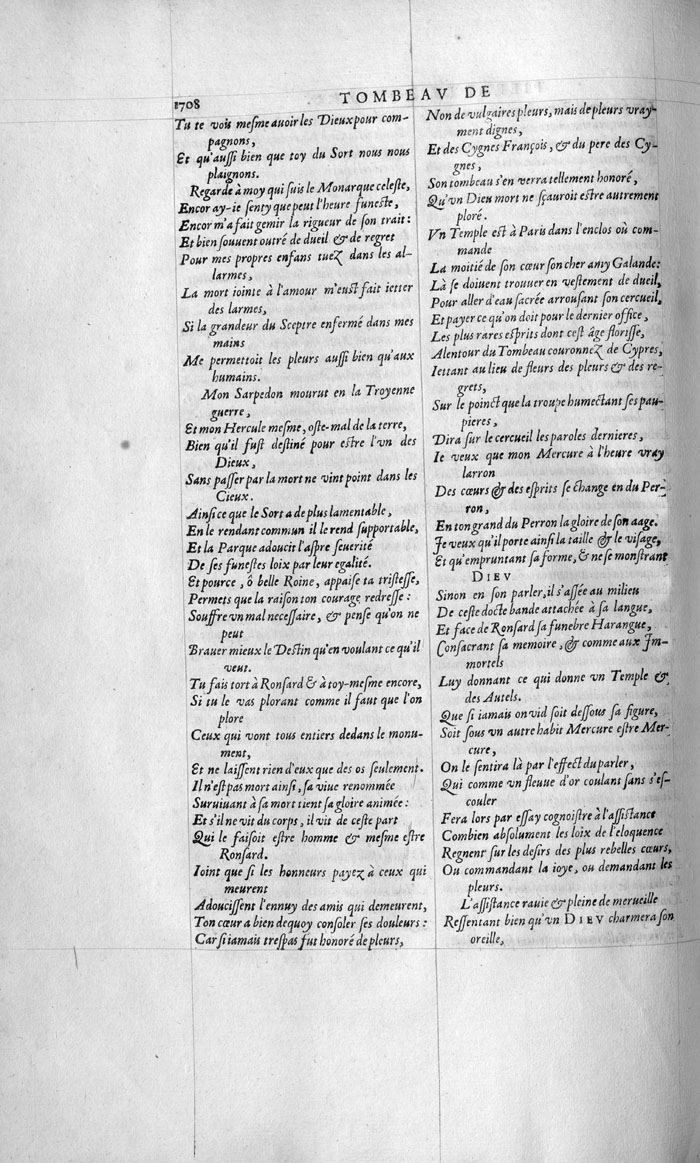 1708
TOMBEAV DE
Tu te vois meſme auoir les Dieux pour com-
pagnons,
Et qu'auſſi bien que toy du Sort nous nous
plaignons.
Regarde à moy qui ſuis le Monarque celeſte,
Encor ay-ie ſenty que peut l'heure funeſte,
Encor m'a fait gemir la rigueur de ſon trait:
Et bien ſouuent outré de dueil & de regret
Pour mes propres enfans tuez dans les al-
larmes,
La mort iointe à l'amour m'euſt fait ietter
des larmes,
Si la grandeur du Sceptre enfermé dans mes
mains
Me permettoit les pleurs auſſi bien qu'aux
humains.
Mon Sarpedon mourut en la Troyenne
guerre,
Et mon Hercule meſme, oſte-mal de la terre,
Bien qu'il fuſt deſtiné pour eſtre l'vn des
Dieux,
Sans paſſer par la mort ne vint point dans les
Cieux.
Ainſi ce que le Sort a de plus lamentable,
En le rendant commun il le rend ſupportable,
Et la Parque adoucit l'aſpre ſeuerité
De ſes funeſtes loix par leur egalité.
Et pource, ô belle Roine, appaiſe ta triſteſſe,
Permets que la raiſon ton courage redreſſe:
Souffre vn mal neceſſaire, & penſe qu'on ne
peut
Brauer mieux le Deſtin qu'en voulant ce qu'il
veut.
Tu fais tort à Ronſard & à toy-meſme encore,
Si tu le vas plorant comme il faut que l'on
plore
Ceux qui vont tous entiers dedans le monu-
ment,
Et ne laiſſent rien d'eux que des os ſeulement.
Il n'eſt pas mort ainſi, ſa viue renommée
Suruiuant à ſa mort tient ſa gloire animée:
Et s'il ne vit du corps, il vit de ceſte part
Qui le faiſoit eſtre homme & meſme eſtre
Ronſard.
Ioint que ſi les honneurs payez à ceux qui
meurent
Adouciſſent l'ennuy des amis qui demeurent,
Ton cœur a bien dequoy conſoler ſes douleurs:
Car ſi iamais treſpas fut honoré de pleurs,
Non de vulgaires pleurs, mais de pleurs vray-
ment dignes,
Et des Cygnes François, & du pere des Cy-
gnes,
Son tombeau s'en verra tellement honoré,
Qu'vn Dieu mort ne ſçauroit eſtre autrement
ploré.
Vn Temple eſt à Paris dans l'enclos où com-
mande
La moitié de ſon cœur ſon cher amy Galande:
Là ſe doiuent trouuer en veſtement de dueil,
Pour aller d'eau ſacrée arrouſant ſon cercueil,
Et payer ce qu'on doit pour le dernier office,
Les plus rares eſprits dont ceſt âge floriſſe,
Alentour du Tombeau couronnez de Cypres,
Iettant au lieu de fleurs des pleurs & des re-
grets,
Sur le poinct que la troupe humectant ſes pau-
pieres,
Dira ſur le cercueil les paroles dernieres,
Ie veux que mon Mercure à l'heure vray
larron
Des cœurs & des eſprits ſe change en du Per-
ron,
En ton grand du Perron la gloire de ſon aage.
Je veux qu'il porte ainſi la taille & le viſage,
Et qu'empruntant ſa forme, & ne ſe monſtrant
DIEV
Sinon en ſon parler, il s'aſſée au milieu
De ceſte docte bande attachée à ſa langue,
Et face de Ronſard ſa funebre Harangue,
Conſacrant ſa memoire, & comme aux Im-
mortels
Luy donnant ce qui donne vn Temple &
des Autels.
Que ſi iamais on vid ſoit deſſous ſa figure,
Soit ſous vn autre habit Mercure eſtre Mer-
cure,
On le ſentira là par l'effect du parler,
Qui comme vn fleuue d'or coulant ſans s'eſ-
couler
Fera lors par eſſay cognoiſtre à l'aſſiſtance
Combien abſolument les loix de l'eloquence
Regnent ſur les deſirs des plus rebelles cœurs,
Ou commandant la ioye, ou demandant les
pleurs.
L'aſſiſtance rauie & pleine de merueille
Reſſentant bien qu'vn DIEV charmera ſon
oreille,